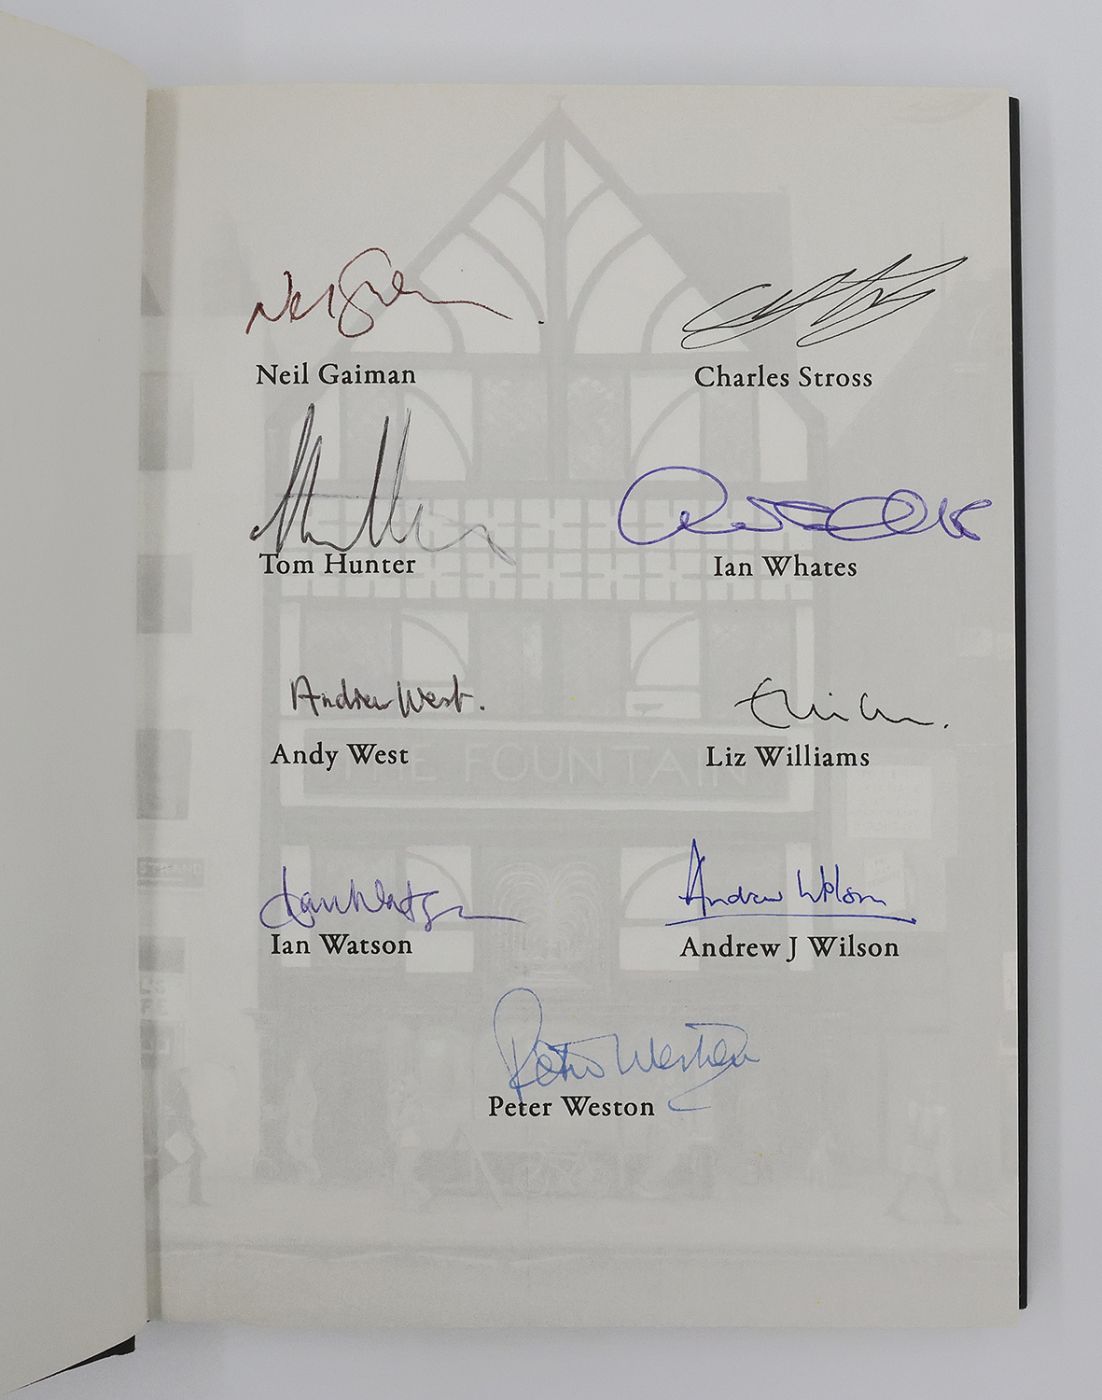 Neil Gaiman
Neil Gaiman
Charles Stross
Tom Hunter
Ian Whates
Andrew West.
Andy West
Liz Williams
THE FOUNTAIN
Ian Watson
Ian Watson
Andrew Wilson
Andrew J Wilson
Peter Weston
Peter Weston